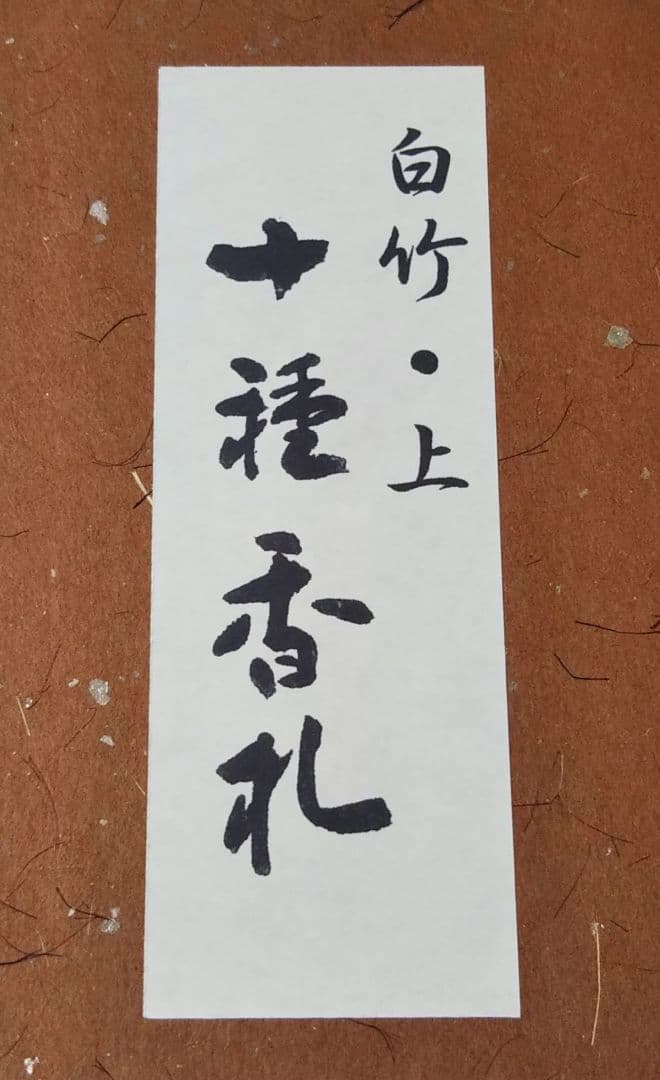 白竹・上
十種香札